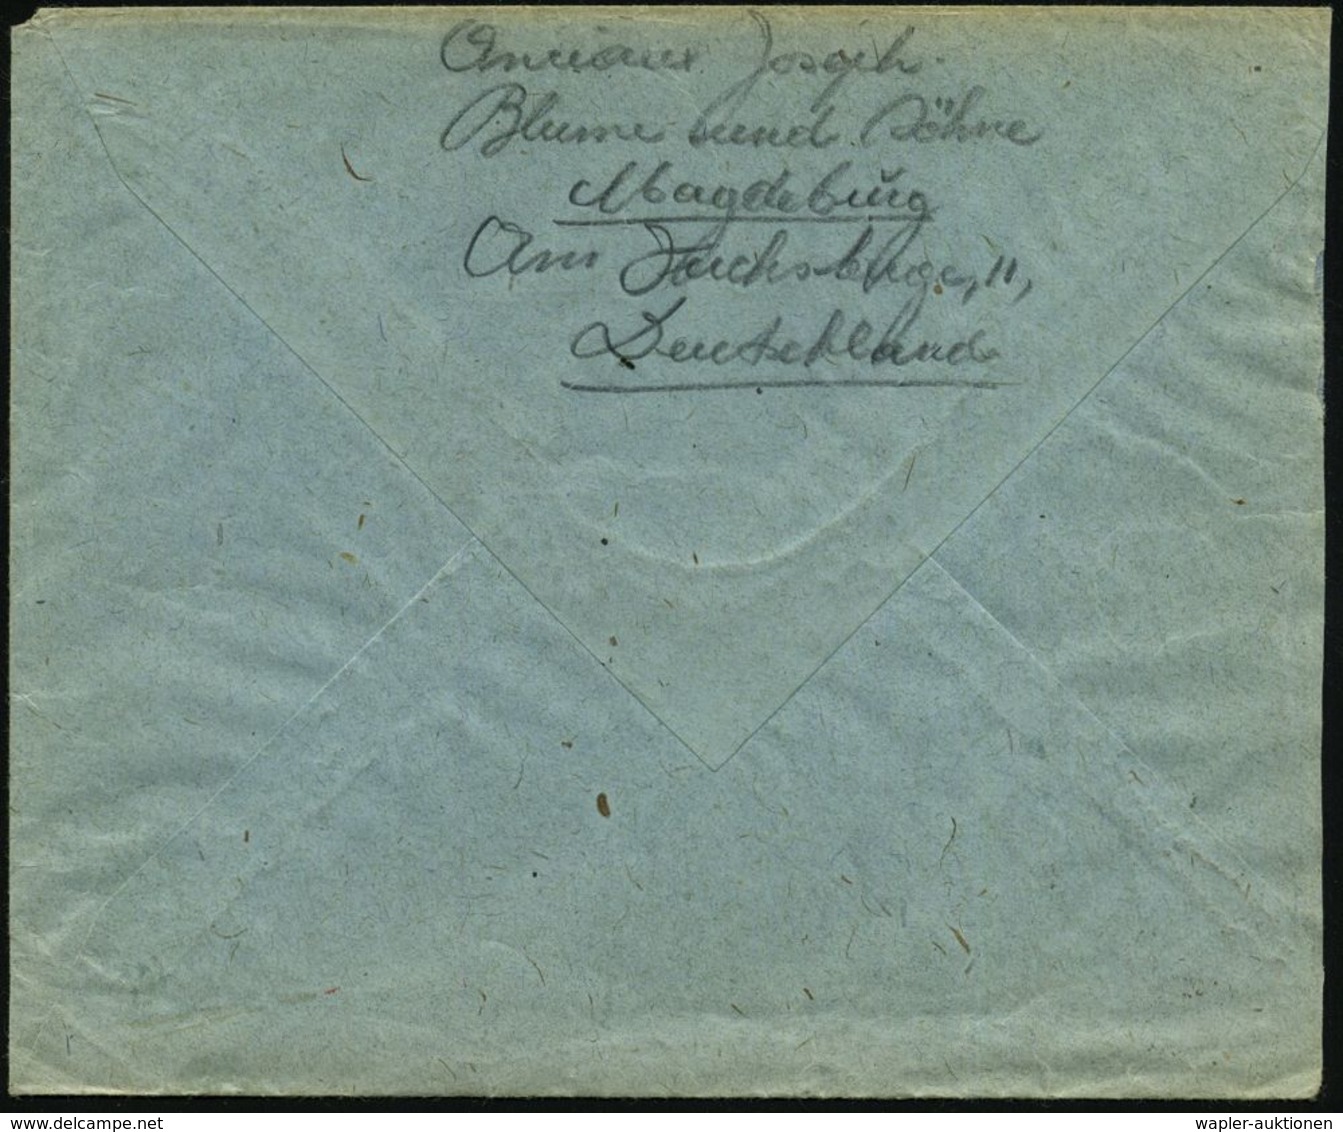 Anciaux Joseph.
Blume und Söhne
Magdebŭrg
Am Fuchsberge, 11,
Deutschland
wapler-auktionen